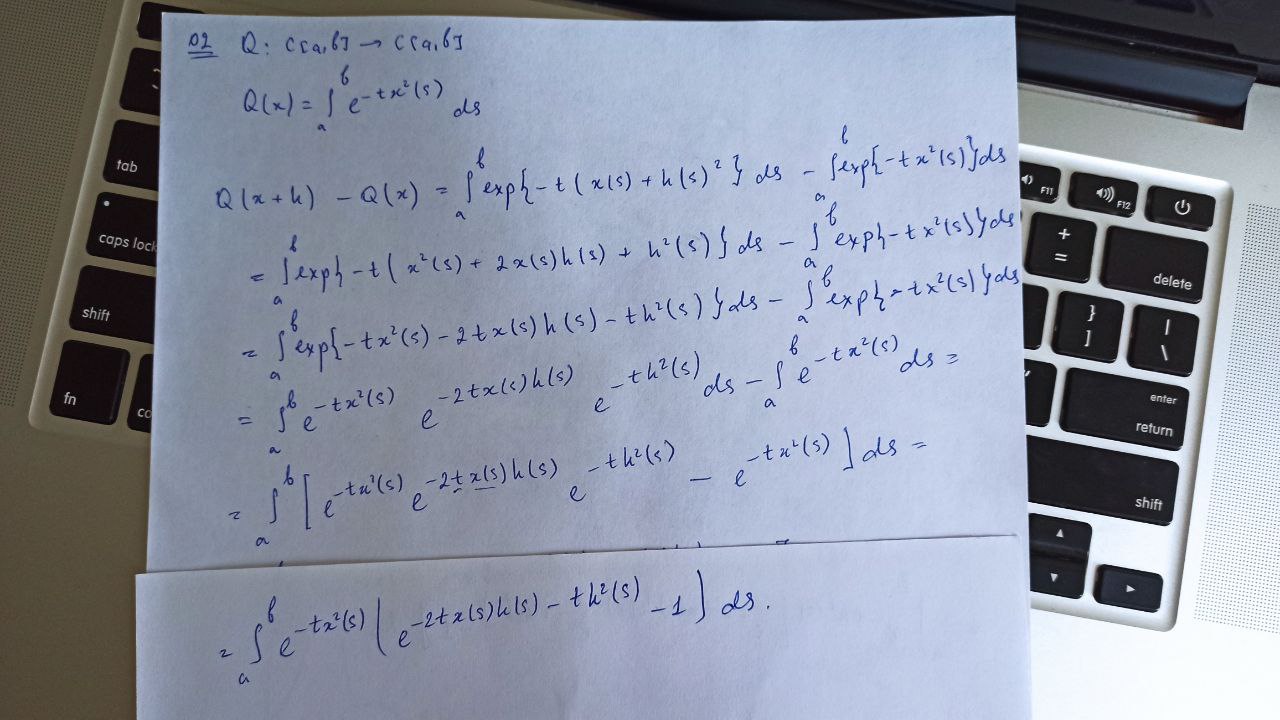 02 Q: C[a,b] → C[a,b]
Q(x) = ∫ₐᵇ e^{-tx²(s)} ds
Q(x+h) - Q(x) = ∫ₐᵇ exp{-t(x(s)+h(s)²} ds - ∫ₐᵇ exp{-tx²(s)}ds
= ∫ₐᵇ exp{-t(x²(s)+2x(s)h(s)+h²(s)} ds - ∫ₐᵇ exp{-tx²(s)}ds
= ∫ₐᵇ exp{-tx²(s)-2tx(s)h(s)-th²(s)}ds - ∫ₐᵇ exp{-tx²(s)}ds
= ∫ₐᵇ e^{-tx²(s)} e^{-2tx(s)h(s)} e^{-th²(s)} ds - ∫ₐᵇ e^{-tx²(s)} ds =
= ∫ₐᵇ [e^{-tx²(s)} e^{-2tx(s)h(s)} e^{-th²(s)} - e^{-tx²(s)}] ds =
= ∫ₐᵇ e^{-tx²(s)} [e^{-2tx(s)h(s)-th²(s)} -1] ds.
tab
caps lock
shift
fn
F11
F12
+
=
delete
}
]
|
\
enter
return
shift